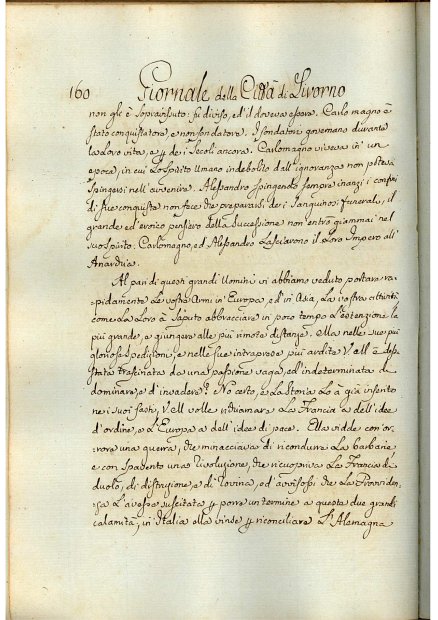 160 Giornale della Città di Livorno
non gli è sopravissuto: fu diviso, ed il doveva essere. Carlo magno è
stato conquistatore, e non fondatore. I fondatori governano durante
la loro vita, e p de i secoli ancora. Carlomagno viveva in un
epoca, in cui lo spirito Umano indebolito dall'ignoranza non poteva
spingersi nell'avvenire. Alessandro spingendo sempre inanzi i confini
di sue conquiste non fece che prepararsi dei sanguinosi funerali, il
grande ed eroico pensiere della Successione non entrò giammai nel
suo spirito. Carlomagno, ed Alessandro lasciarono il loro Impero all'
Anarchia.
Al pari di questi grandi Uomini vi abbiamo veduto portare ra-
pidamente le vostre Armi in Europa, ed in Asia, la vostra attività
come la loro à saputo abbracciare in poco tempo l'estenzione la
più grande, e giungere alle più rimote distanze. Ma nelle sue più
gloriose spedizioni, e nelle sue intraprese più ardite V. M. è
stata trascinata da una passione vaga, ed indeterminata di
dominare, e d'invadere? No certo, e la Storia lo à già inserito
nei suoi fasti, V. M. volle richiamare la Francia a dell'idee
d'ordine, e l'Europa a dell'idee di pace. Ella vidde con or-
rore una guerra, che minacciava di ricondurre la barbarie,
e con spavento una rivoluzione, che ricuopriva la Francia di
duolo, di distruzione, e di rovina, ed avvisossi che la Providen-
za l'avesse suscitata p porre un termine a queste due grandi
calamità; in Italia ella vinse p riconciliare l'Alemagna